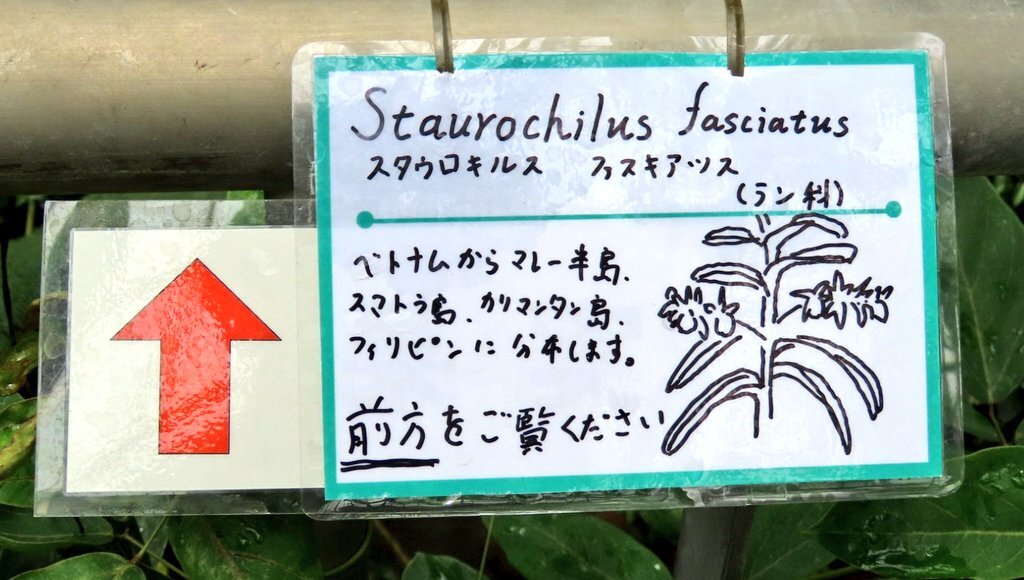 Staurochilus fasciatus
スタウロキルス ファスキアツス
(ラン科)
ベトナムからマレー半島、
スマトラ島、カリマンタン島、
フィリピンに分布します。
前方をご覧ください